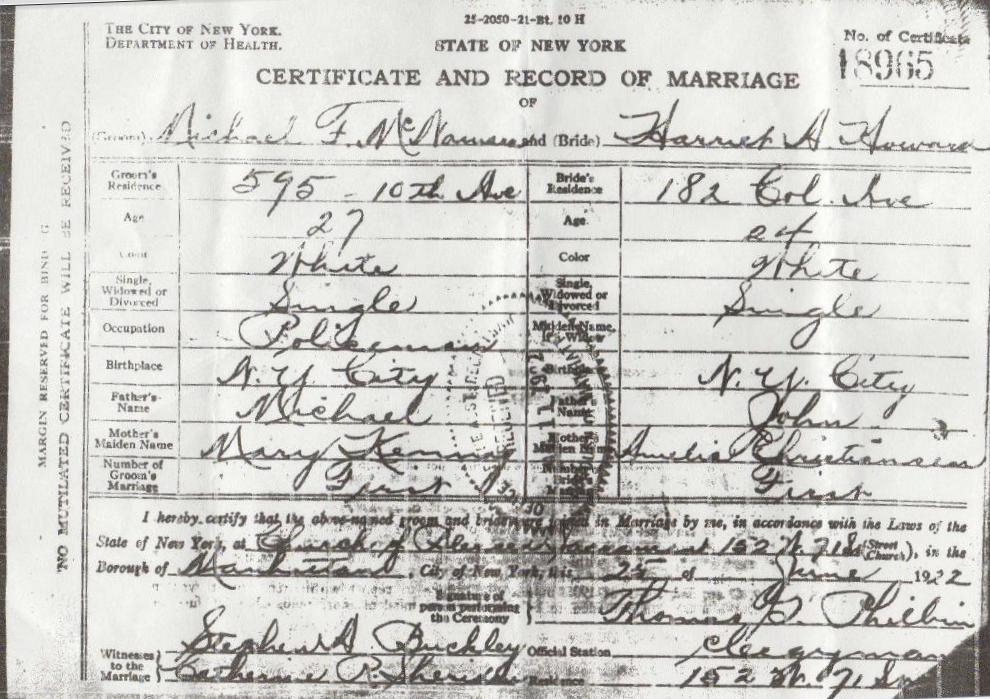 25-2050-21-Bt. 10 H
THE CITY OF NEW YORK.
DEPARTMENT OF HEALTH.
STATE OF NEW YORK
No. of Certificate
18965
CERTIFICATE AND RECORD OF MARRIAGE
OF
(Groom) Michael F. McNamara and (Bride) Harriet A. Howard
Groom's Residence 595 - 10th Ave Bride's Residence 182 Col. Ave
Age 27 Age 24
Color White Color White
Single, Widowed or Divorced Single Single, Widowed or Divorced Single
Occupation Policeman Maiden Name, if a Widow
Birthplace N. Y. City Birthplace N. Y. City
Father's Name Michael Father's Name John
Mother's Maiden Name Mary Kenny Mother's Maiden Name Amelia Christiansen
Number of Groom's Marriage First Number of Bride's Marriage First
I hereby certify that the above-named groom and bride were joined in Marriage by me, in accordance with the Laws of the
State of New York, at Church of Blessed Sacrament 152 W. 71 St (Street Church), in the
Borough of Manhattan, City of New York, this 25 of June 1922
Signature of person performing the Ceremony Thomas F. Philbin
Witnesses to the Marriage Stephen A Buckley Official Station Clergyman
Catherine P. Residence 152 W. 71
MARGIN RESERVED FOR BINDING
NO MUTILATED CERTIFICATE WILL BE RECEIVED